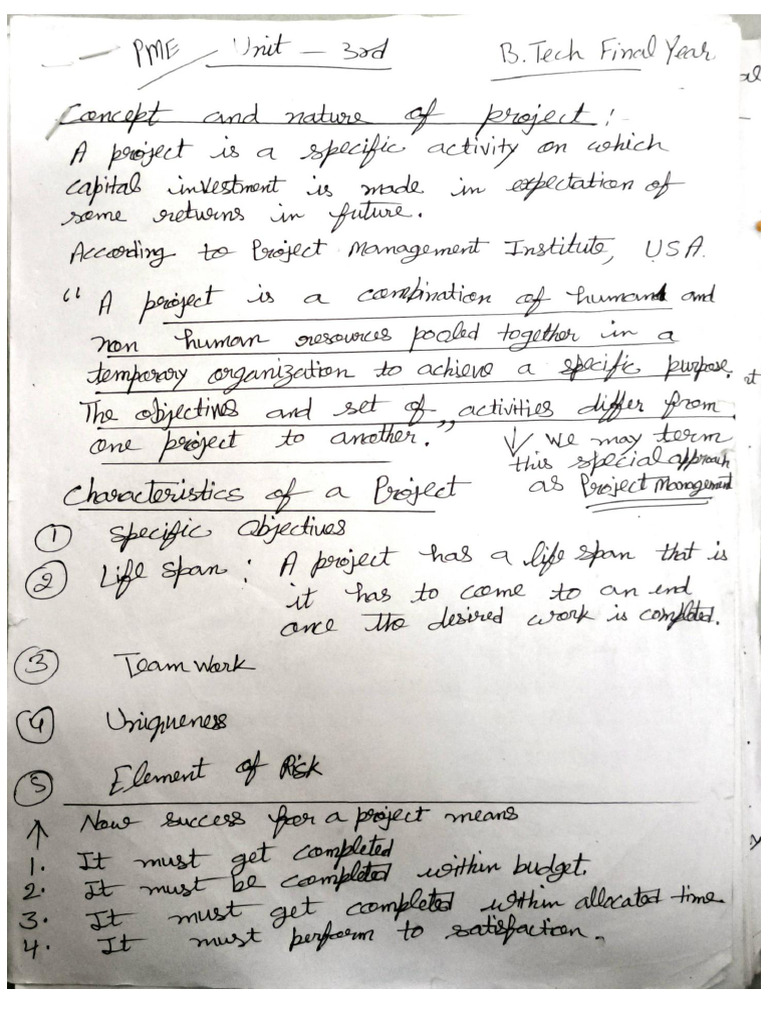 PME Unit - 3rd B.Tech Final Year
Concept and nature of project :
A project is a specific activity on which
capital investment is made in expectation of
some returns in future.
According to Project Management Institute, USA.
“ A project is a combination of human and
non human resources pooled together in a
temporary organization to achieve a specific purpose.
The objectives and set of activities differ from
one project to another.”
↓ We may term
this special approach
as Project Management
Characteristics of a Project
① Specific Objectives
② Life Span : A project has a life span that is
it has to come to an end
once the desired work is completed.
③ Team Work
④ Uniqueness
⑤ Element of Risk
↑ Now success for a project means
1. It must get completed
2. It must be completed within budget.
3. It must get completed within allocated time
4. It must perform to satisfaction.